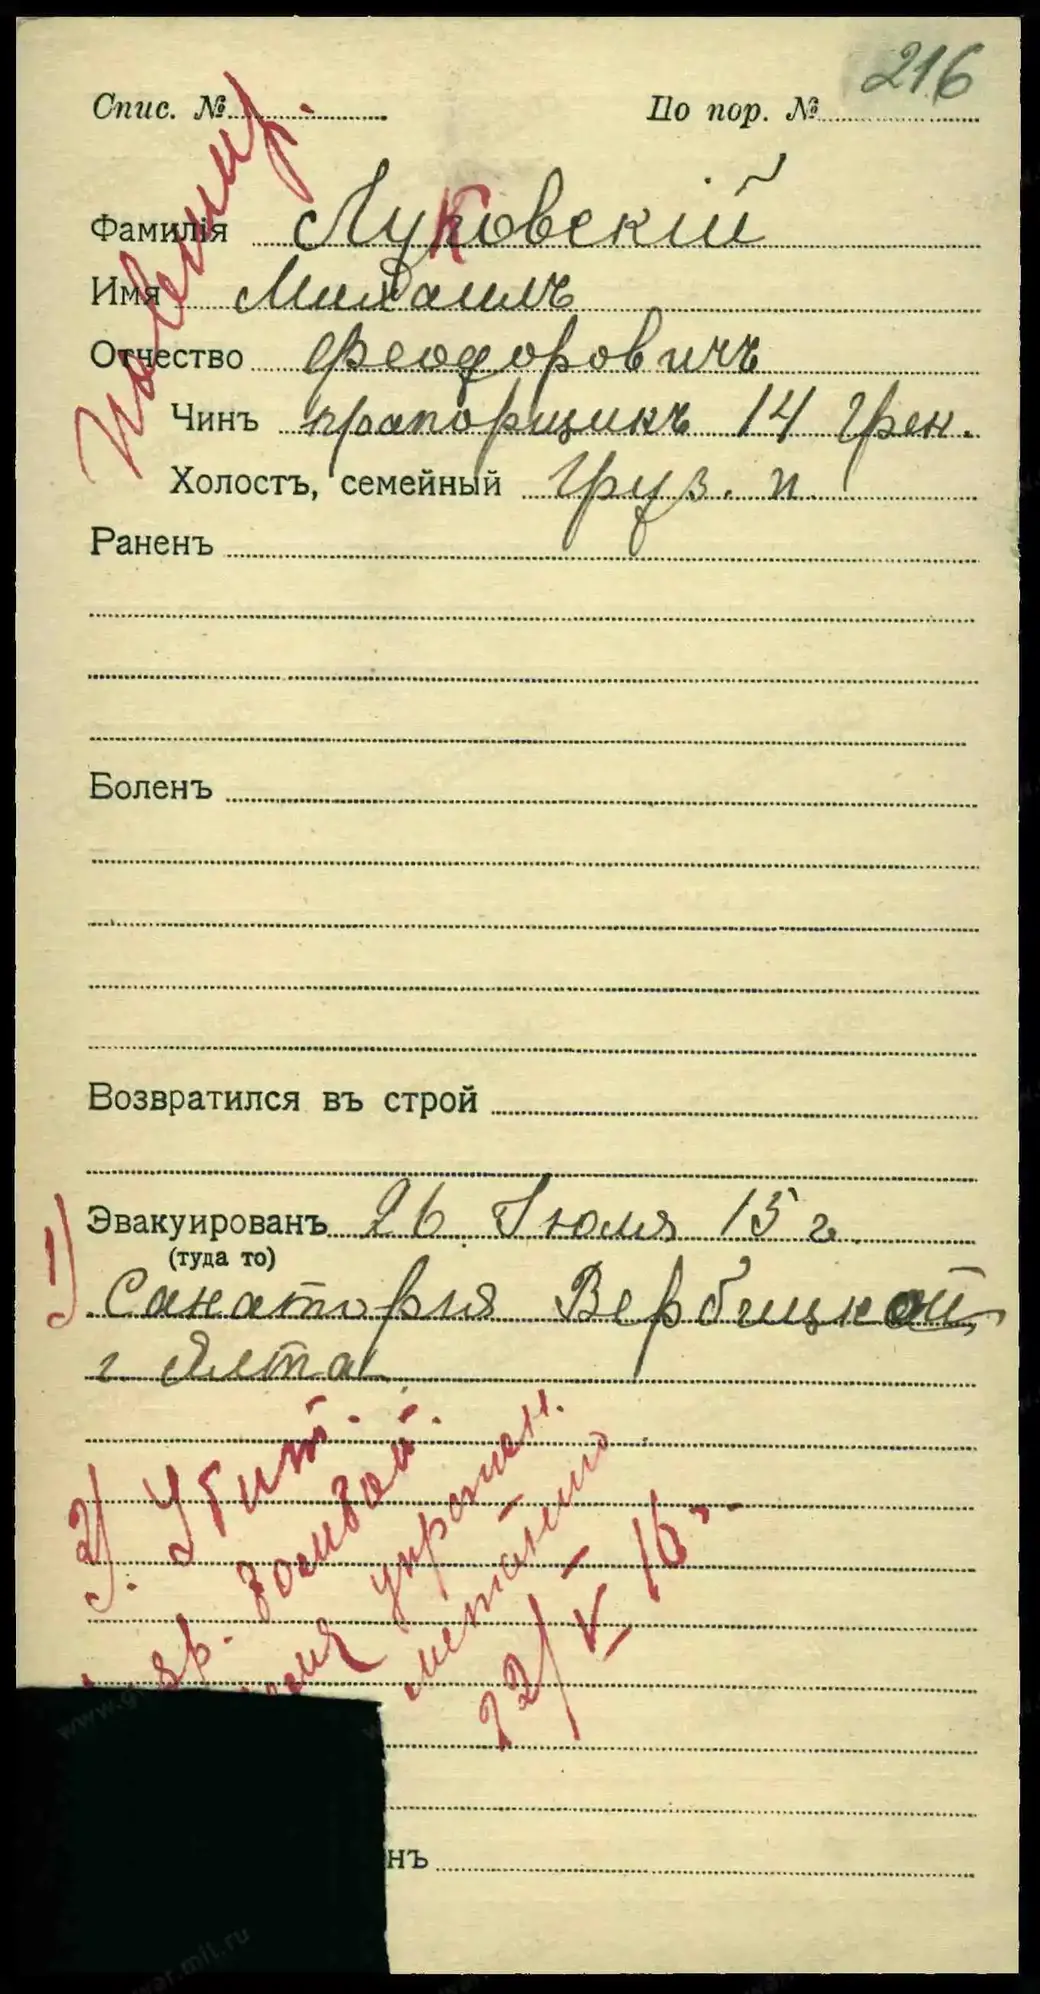 216
Спис. № По пор. №
Фамилія Луковскій
Имя Михаилъ
Отчество Феодоровичъ
Чинъ прапорщикъ 14 Грен.
Холостъ, семейный Груз. п.
Раненъ
Боленъ
Возвратился въ строй
1) Эвакуированъ 26 Іюля 15 г.
(туда то)
Санаторія Вербицкой
г. Ялта
2). Убит.
гр. бомбой
упражн.
метанию
22/V 16
нъ